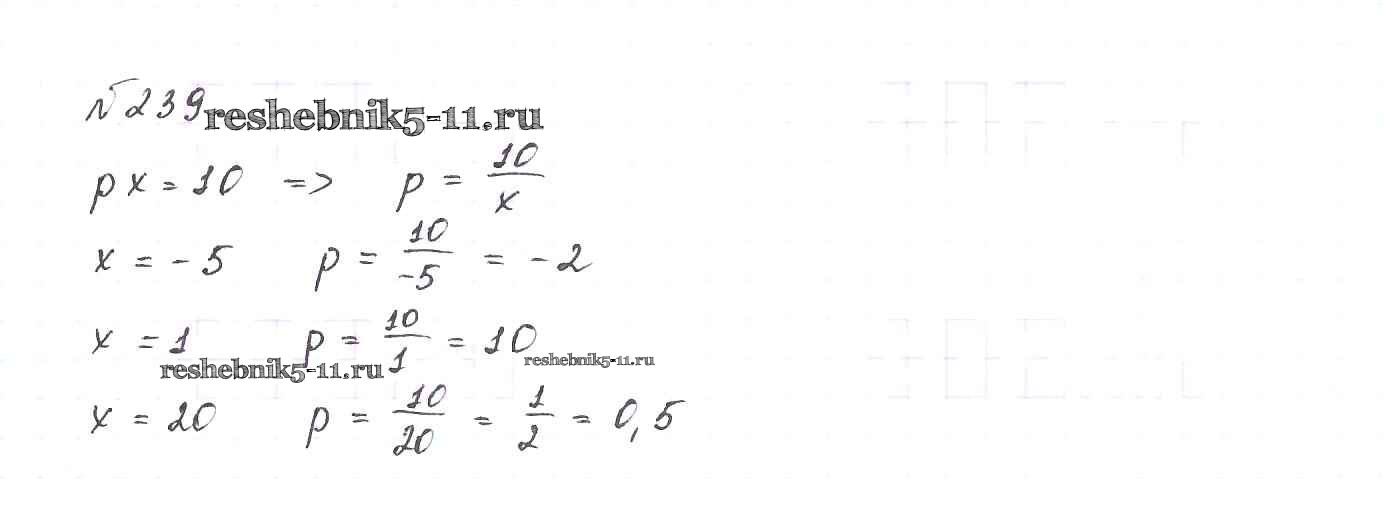 №239 reshebnik5-11.ru
px = 10 => p = 10/x
x = -5 p = 10/-5 = -2
x = 1 p = 10/1 = 10
reshebnik5-11.ru reshebnik5-11.ru
x = 20 p = 10/20 = 1/2 = 0,5